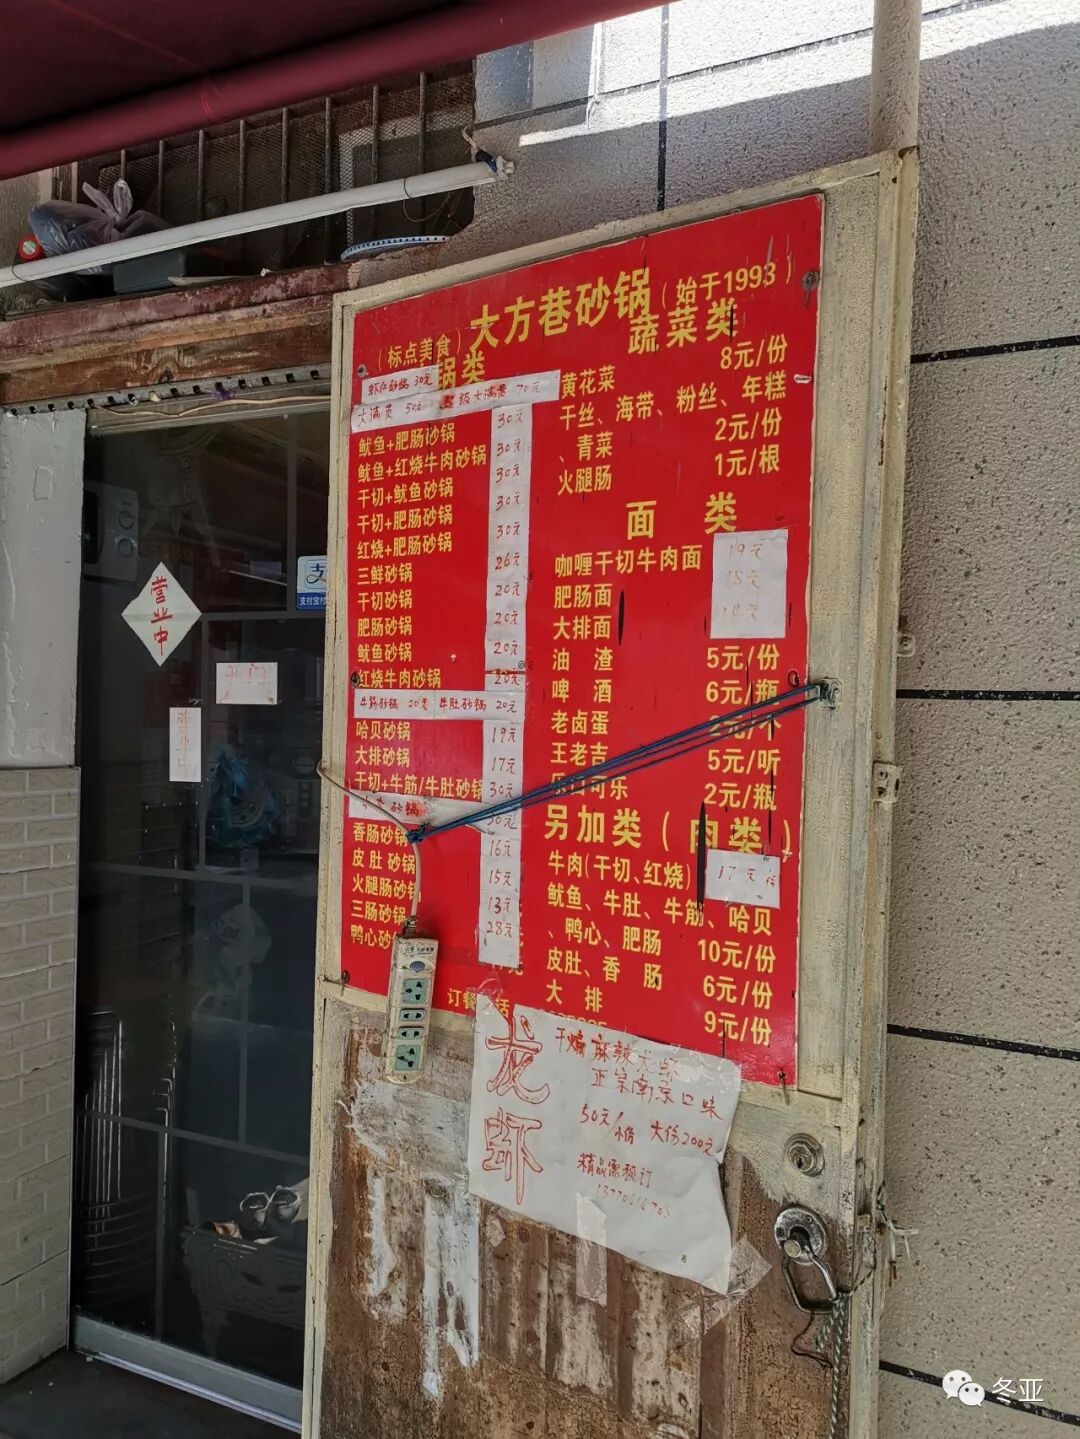 大方巷砂锅
（标点美食）
（始于1993）
锅类
虾仁砂锅 30元
大满贯 50元
级大满贯 70元
鱿鱼+肥肠砂锅 30元
鱿鱼+红烧牛肉砂锅 30元
干切+鱿鱼砂锅 30元
干切+肥肠砂锅 30元
红烧+肥肠砂锅 30元
三鲜砂锅 26元
干切砂锅 20元
肥肠砂锅 20元
鱿鱼砂锅 20元
红烧牛肉砂锅 20元
牛筋砂锅 20元 牛肚砂锅 20元
哈贝砂锅 19元
大排砂锅 17元
干切+牛筋/牛肚砂锅 30元
砂锅 30元
香肠砂锅 16元
皮肚砂锅 15元
火腿肠砂锅 13元
三肠砂锅 28元
鸭心砂
订餐 话
蔬菜类
8元/份
黄花菜
干丝、海带、粉丝、年糕
、青菜 2元/份
火腿肠 1元/根
面 类
咖喱干切牛肉面 19元
肥肠面 18元
大排面
油 渣 5元/份
啤 酒 6元/瓶
老卤蛋 2元/个
王老吉 5元/听
可乐 2元/瓶
另加类（肉类）
牛肉(干切、红烧) 17元/份
鱿鱼、牛肚、牛筋、哈贝
、鸭心、肥肠 10元/份
皮肚、香 肠 6元/份
大 排 9元/份
龙虾
干煸麻辣龙虾
正宗南京口味
50元/小份 大份200元
精品需预订
营业中
营业中
支付宝
冬亚